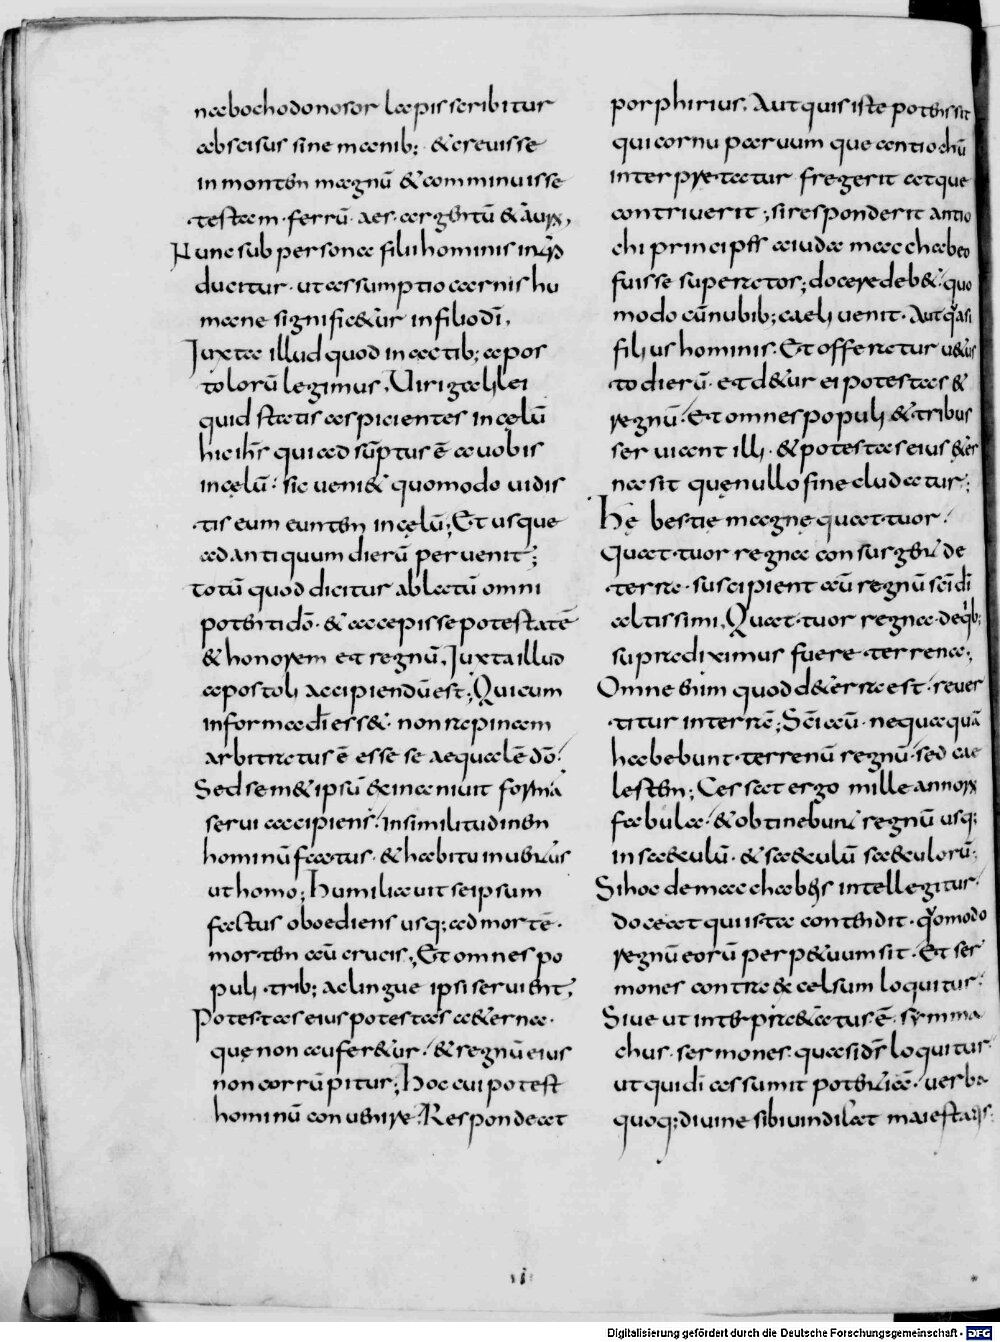 nabochodonosor lapis scribitur
abscisus sine manib; & crevisse
in montẽ magnũ & comminuisse
testam ferrũ aes argentũ & aurũ,
Nunc sub persona filii hominis intro
ducitur · ut assumptio carnis hu
mane signific&ur in filio dĩ,
Juxta illud quod in actib; apos
tolorũ legimus, Viri galilei
quid statis aspicientes in cęlũ
hic ih̃s qui ad sũptus ẽ a vobis
in cęlũ · sic veni& quomodo vidis
tis eum euntem in cęlũ; Et usque
ad antiquum dierũ pervenit;
totũ quod dicitur ablatũ omni
potenti dõ · & accepisse potestatẽ
& honorem et regnũ, Juxta illud
apostoli accipiendũ est; Qui cum
in forma dĩ ess& · non rapinam
arbitratus ẽ esse se aequalẽ dõ ·
Sed sem&ipsũ exinanivit formã
servi accipiens · In similitudinem
hominũ factus · & habitu inventus
ut homo; Humiliavit seipsum
factus oboediens usq; ad mortẽ ·
mortem aũ crucis; Et omnes po
puli · trib; ac lingue ipsi servient,
Potestas eius potestas aeterna ·
quę non aufer&ur · & regnũ eius
non corrũpitur; Hoc cui potest
hominũ convenire · Respondeat
porphirius, Aut quis iste potens sit
qui cornu parvum que antiochũ
interpretatur fregerit atque
contriverit; si responderit antio
chi principes a iuda machabeo
fuisse superatos; docere deb& · quo
modo cũ nubib; caeli venit · Aut quasi
filius hominis · Et offeratur vetus
to dierũ · et d&ur ei potestas &
regnũ · Et omnes populi & tribus
serviant illi · & potestas eius eter
na sit quę nullo fine cludatur;
Hę bestię magnę quattuor ·
Quattuor regna consurgent de
terra · suscipient aũ regnũ sc̃i dĩ
altissimi, Quattuor regna · de quib;
supra diximus fuere terrena;
Omne enim quod de terra est · rever
titur in terrã; Sc̃i aũ nequaquã
habebunt terrenũ regnũ · sed cae
lestem; Cessat ergo mille annorũ
fabula · & obtinebunt regnũ usq;
in saeculũ · & saeculũ saeculorũ;
Si hoc de machabeis intellegitur ·
doceat qui ista contendit · quomodo
regnũ eorũ perp&uum sit · Et ser
mones contra excelsum loquitur ·
Sive ut interpraetatus ẽ · symma
chus · sermones quasi ds̃ loquitur ·
ut qui dĩ assumit potentiã · verba
quoq; divine sibi vindicat maiestatis ·
vi
Digitalisierung gefördert durch die Deutsche Forschungsgemeinschaft - DFG